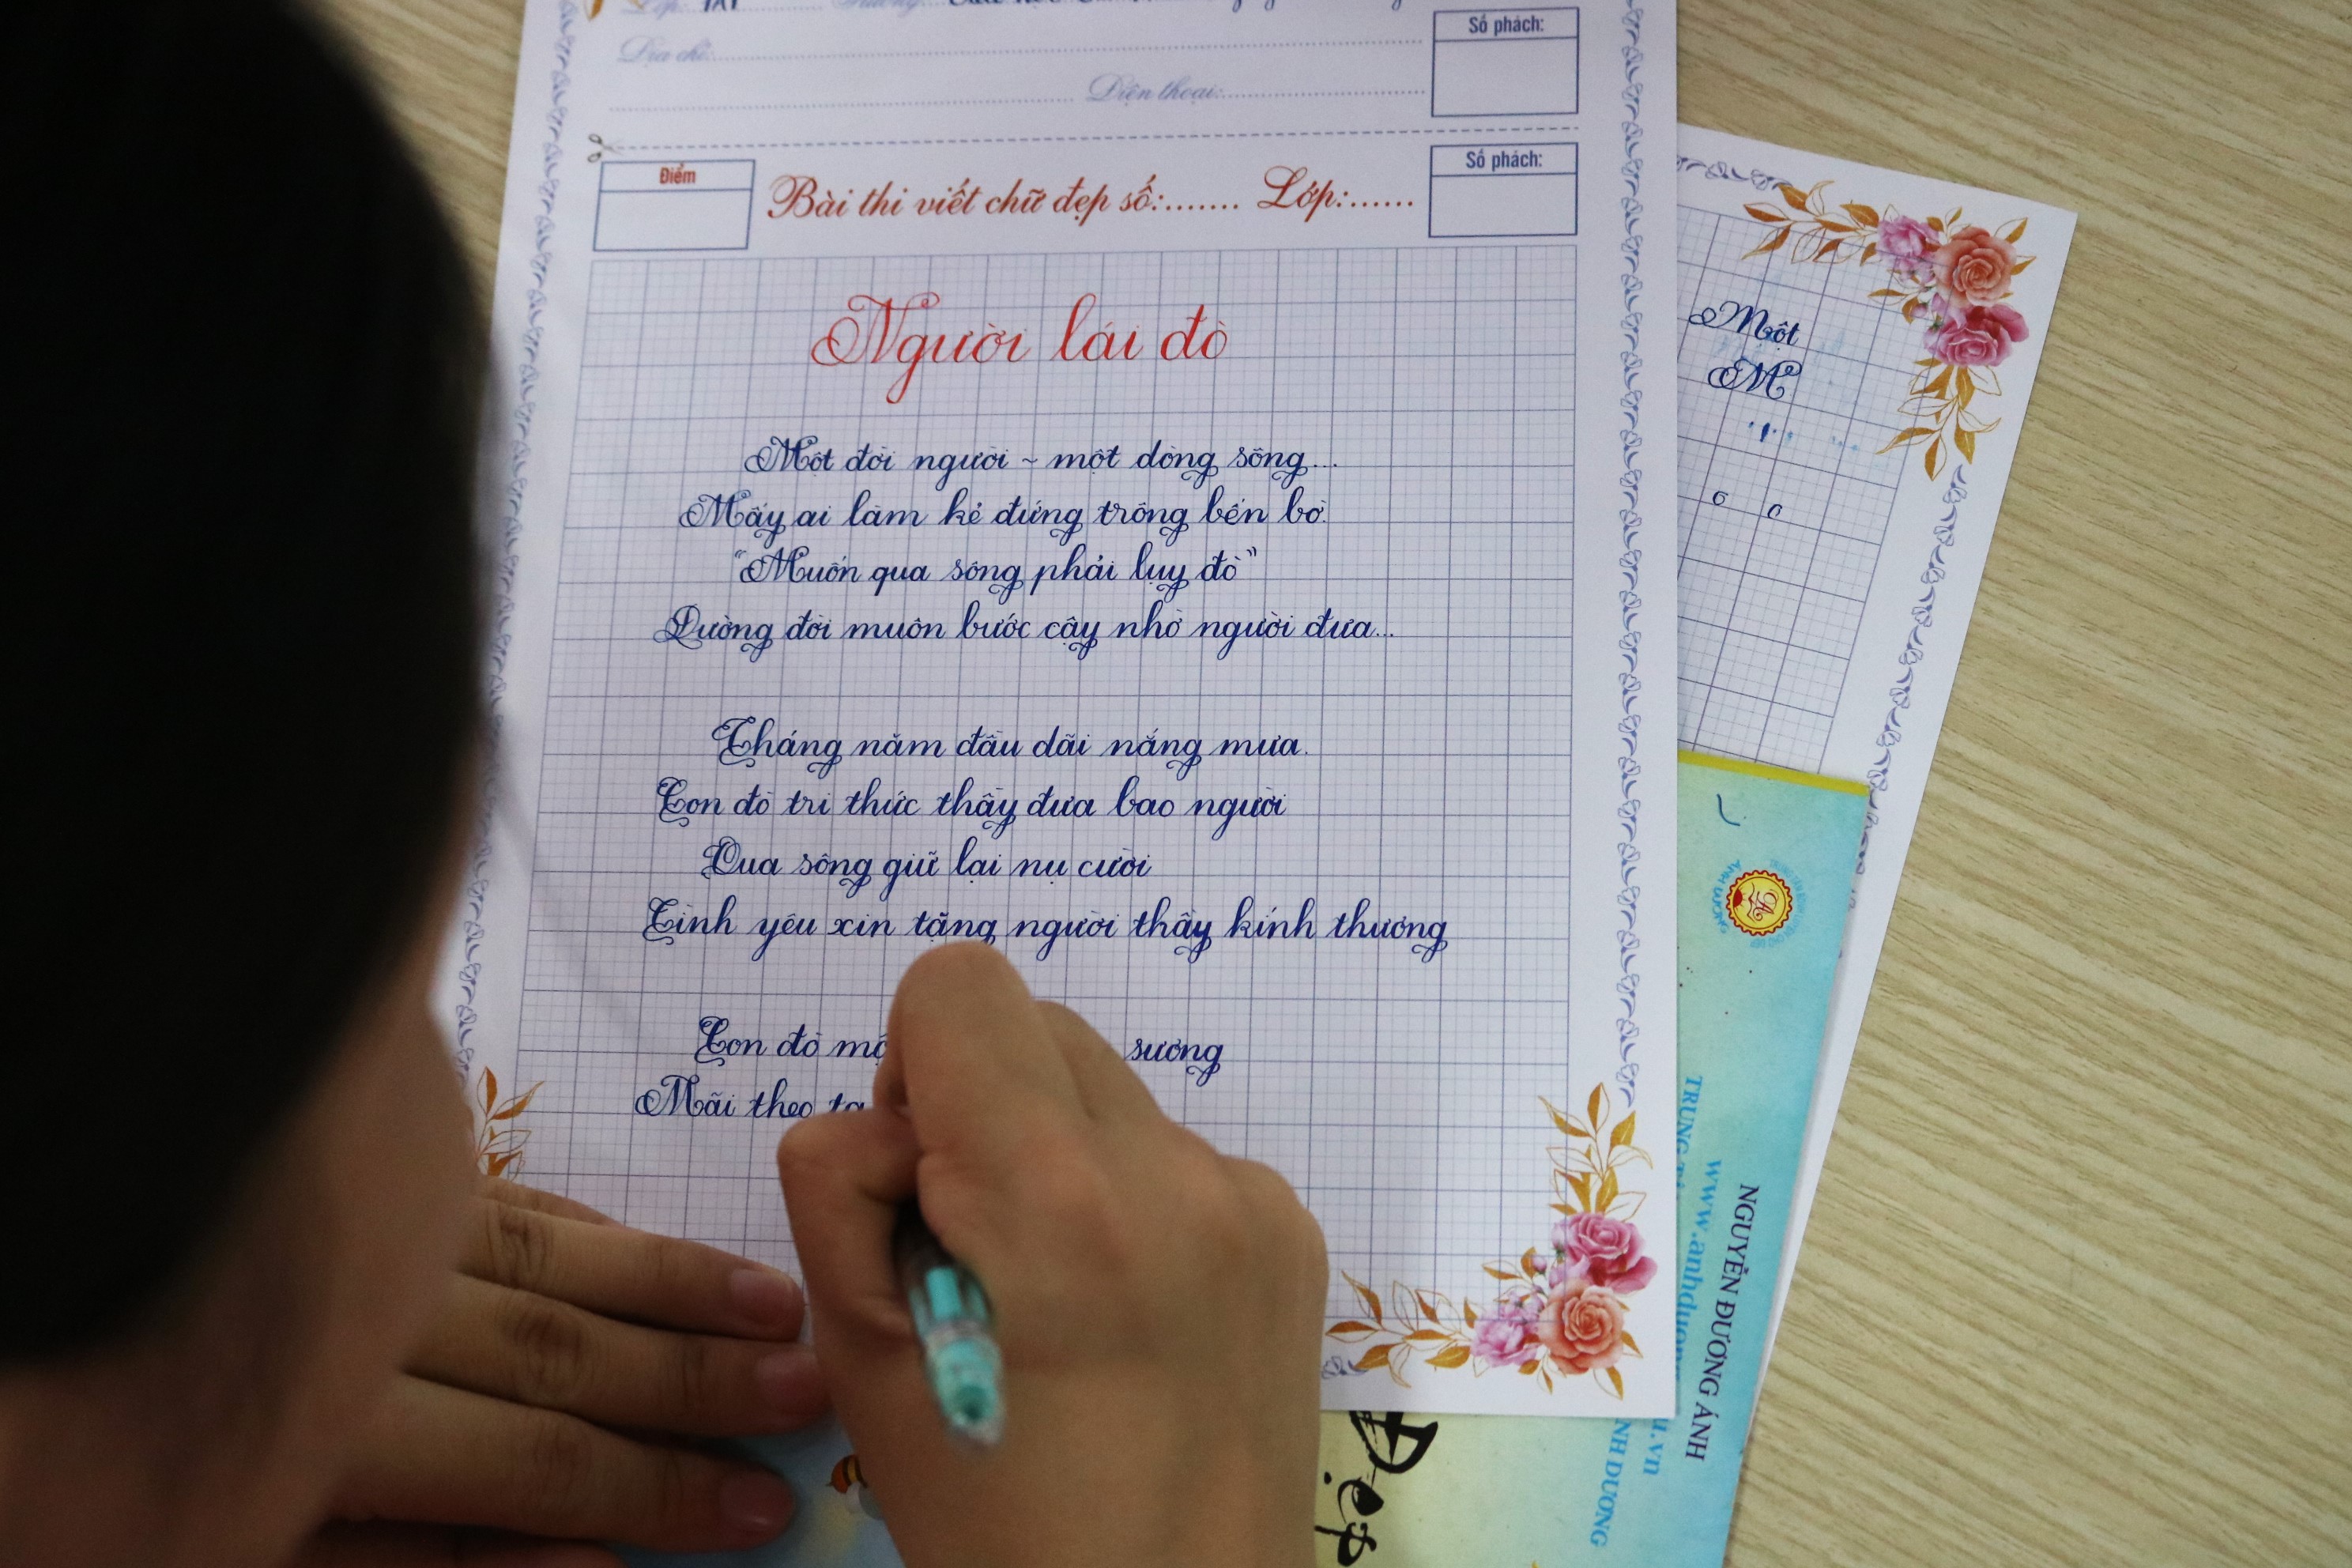 Lớp:
Địa chỉ:
Điện thoại:
Số phách:
Điểm
Bài thi viết chữ đẹp số:....... Lớp:......
Số phách:
Người lái đò
Một đời người ~ một dòng sông...
Mấy ai làm kẻ đứng trông bến bờ.
"Muốn qua sông phải lụy đò"
Đường đời muôn bước cậy nhờ người đưa...
Tháng năm dầu dãi nắng mưa.
Con đò tri thức thầy đưa bao người
Qua sông giữ lại nụ cười
Tình yêu xin tặng người thầy kính thương
Con đò sương
Mãi theo
Một
M
ÁNH DƯƠNG
NGUYỄN DƯƠNG ÁNH
TRUNG
Đẹp